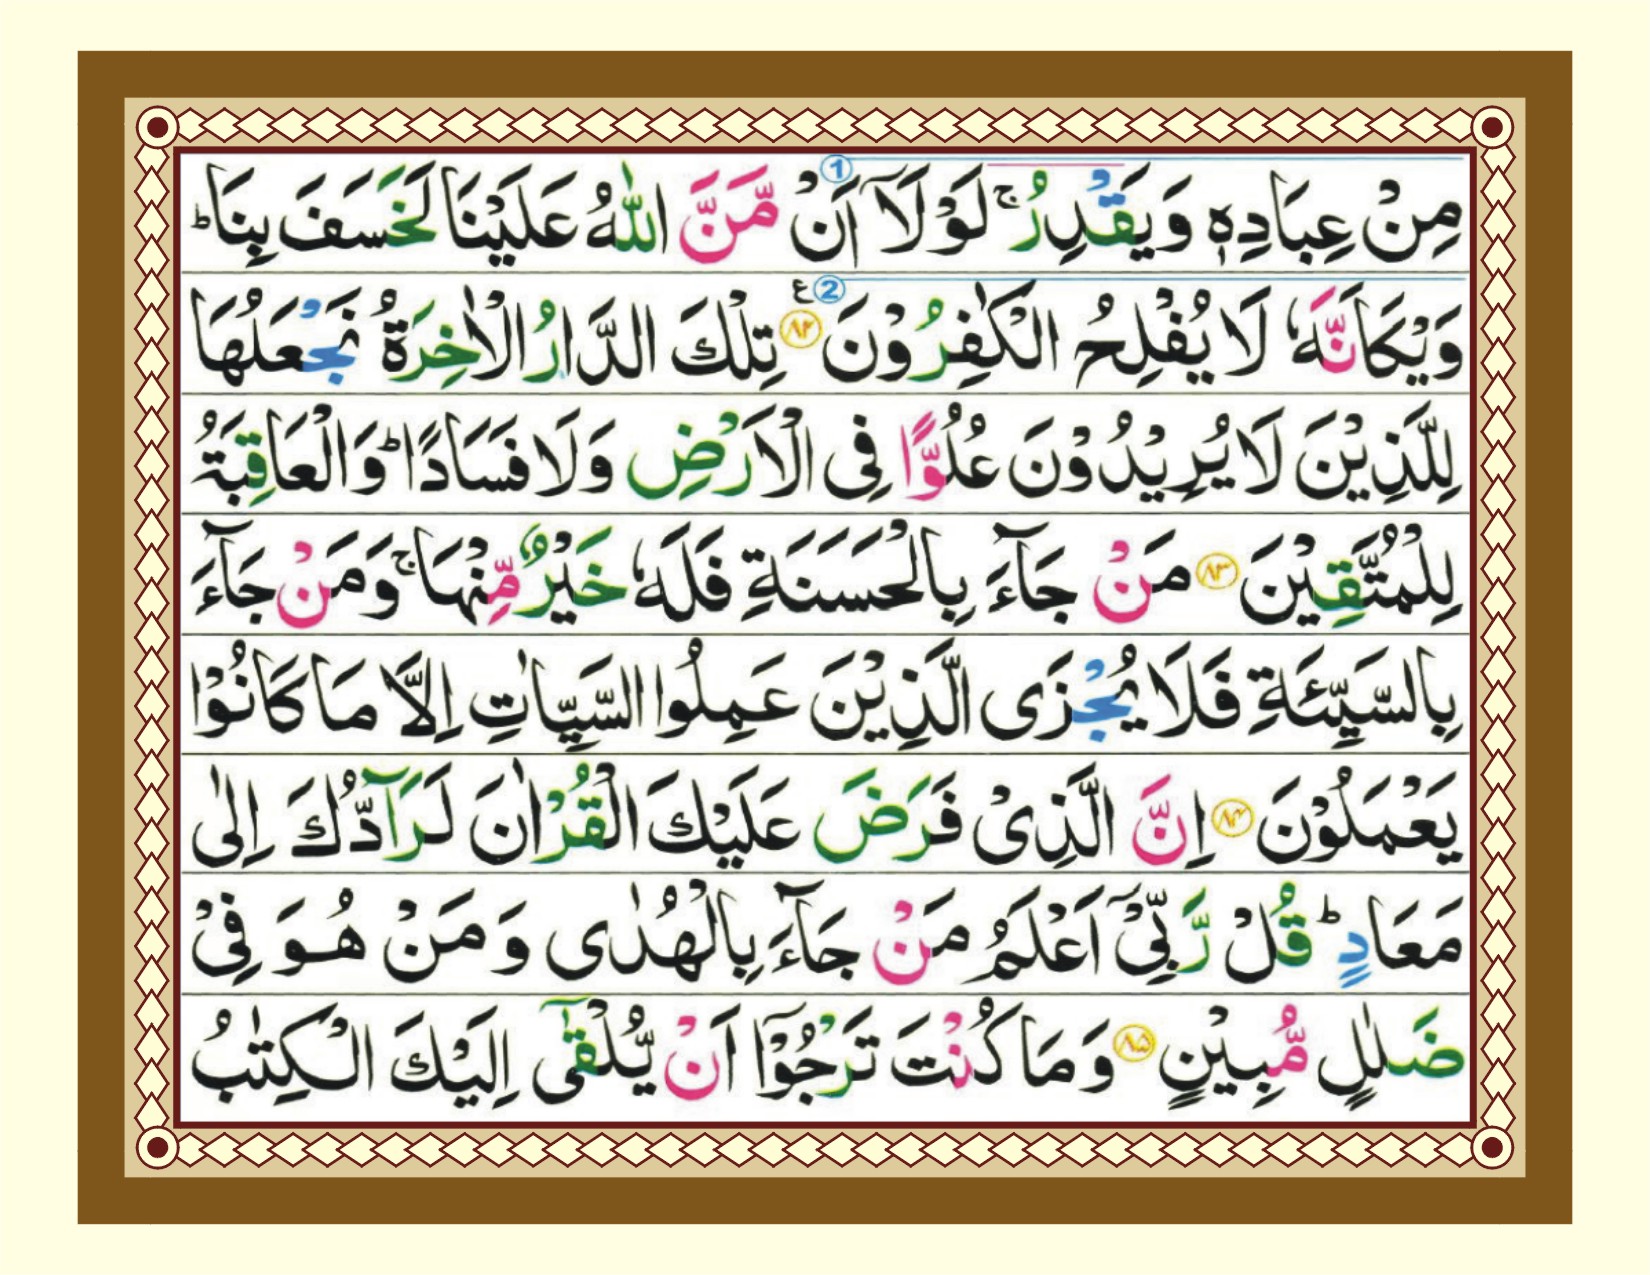 مِنْ عِبَادِهٖ وَيَقْدِرُ ۚ لَوْلَاۤ اَنْ مَّنَّ اللّٰهُ عَلَيْنَا لَخَسَفَ بِنَا ؕ
وَيْكَاَنَّهٗ لَا يُفْلِحُ الْكٰفِرُوْنَ ۸۲ تِلْكَ الدَّارُ الْاٰخِرَةُ نَجْعَلُهَا
لِلَّذِيْنَ لَا يُرِيْدُوْنَ عُلُوًّا فِى الْاَرْضِ وَلَا فَسَادًا ؕ وَالْعَاقِبَةُ
لِلْمُتَّقِيْنَ ۸۳ مَنْ جَآءَ بِالْحَسَنَةِ فَلَهٗ خَيْرٌ مِّنْهَا ۚ وَمَنْ جَآءَ
بِالسَّيِّئَةِ فَلَا يُجْزَى الَّذِيْنَ عَمِلُوا السَّيِّاٰتِ اِلَّا مَا كَانُوْا
يَعْمَلُوْنَ ۸۴ اِنَّ الَّذِىْ فَرَضَ عَلَيْكَ الْقُرْاٰنَ لَرَآدُّكَ اِلٰى
مَعَادٍ ؕ قُلْ رَّبِّىْۤ اَعْلَمُ مَنْ جَآءَ بِالْهُدٰى وَمَنْ هُوَ فِىْ
ضَلٰلٍ مُّبِيْنٍ ۸۵ وَمَا كُنْتَ تَرْجُوْۤا اَنْ يُّلْقٰٓى اِلَيْكَ الْكِتٰبُ